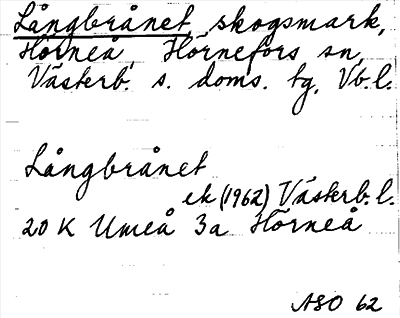 Långbrånet, skogsmark,
Hörneå, Hörnefors sn,
Västerb. s. doms. tg, Vb.l.
Långbrånet
ek (1962) Västerb.l.
20 K Umeå 3a Hörneå
ASO 62